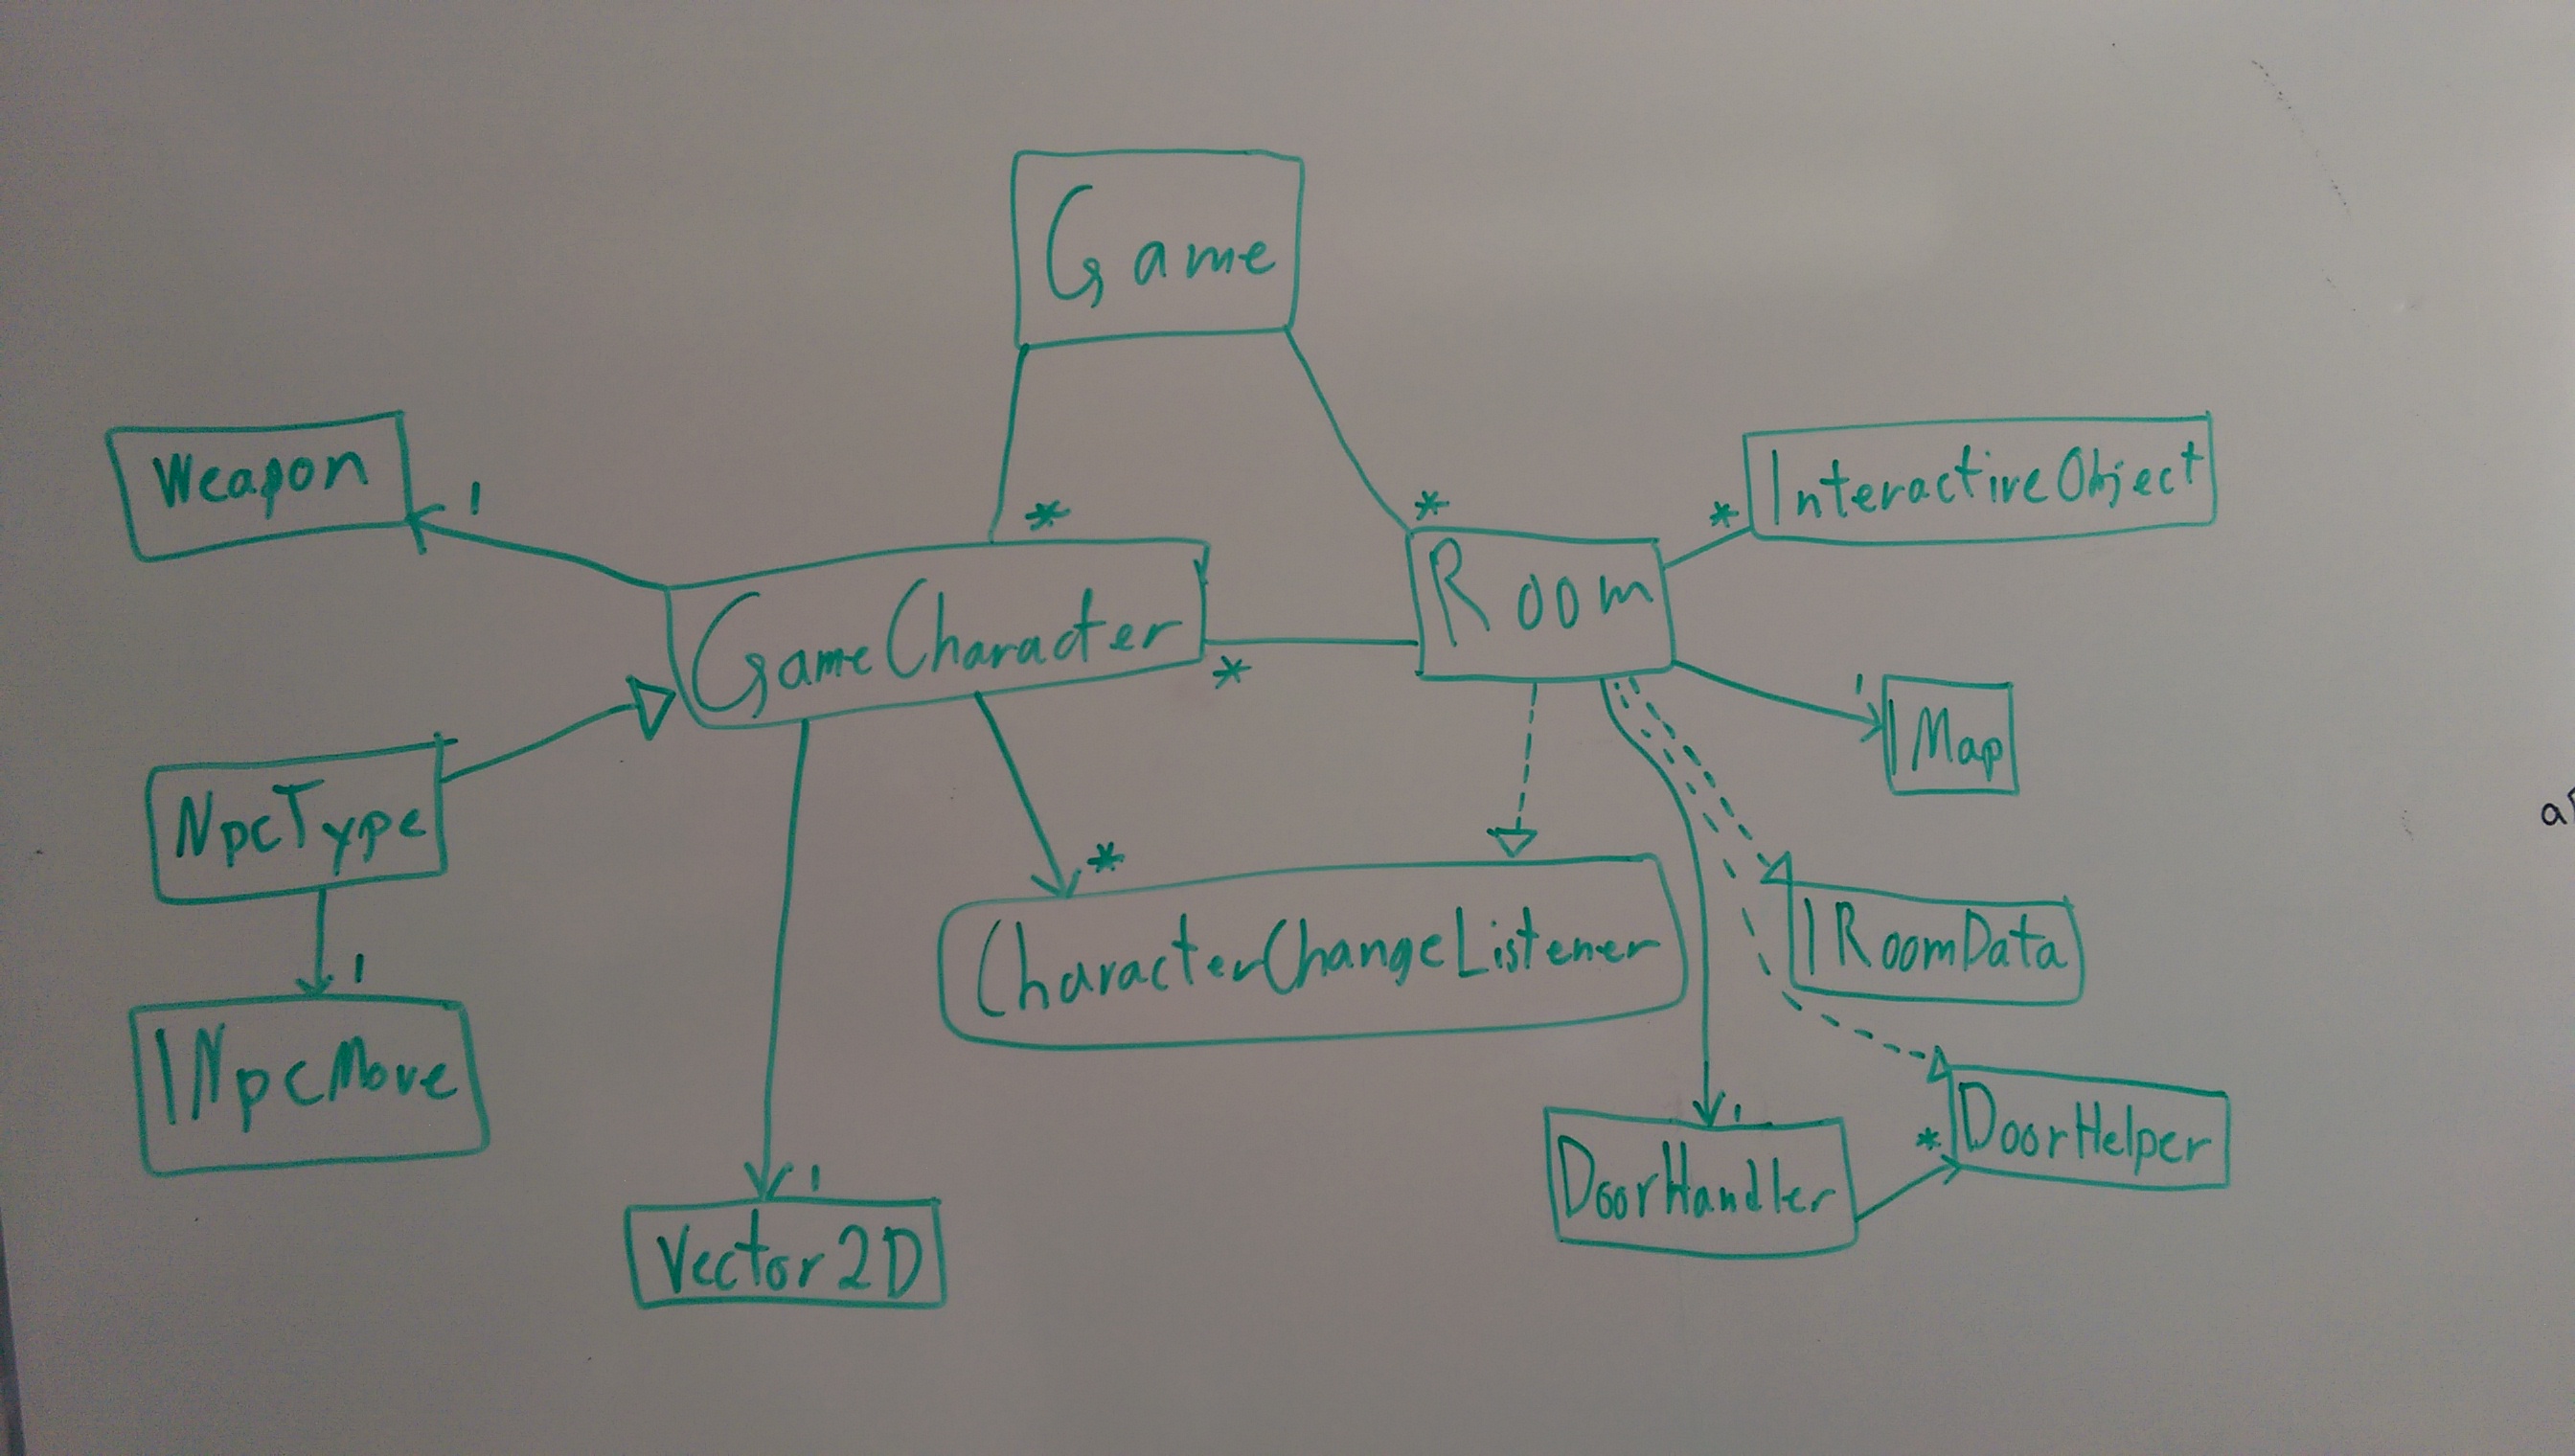 Game
Weapon
1
*
*
*
InteractiveObject
GameCharacter
Room
*
1
IMap
NpcType
*
CharacterChangeListener
IRoomData
1
INpcMove
1
*
DoorHelper
DoorHandler
1
Vector2D